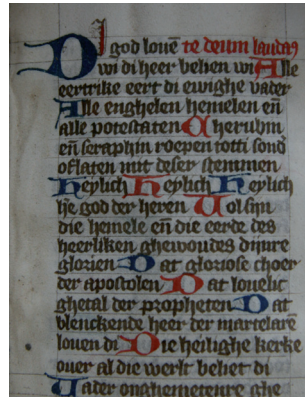 DI god louē te deum laudam9
wi di heer belien wi Alle
eertrike eert di ewighe vader
Alle enghelen hemelen eñ
alle potestaten Cherubin
eñ seraphin roepen totti sond̾
oflaten mit deser stemmen
Heylich Heylich Heylich
h̾e god der heren Vol sijn
die hemele eñ die eerde des
heerliken ghewoudes dijnre
glorien Dat gloriose choer
der apostolen Dat louelic
ghetal der propheten Dat
blenckende heer der martelarē
louen di Die heilighe kerke
ouer al die werlt beliet di
Vader onghemetenre ghe